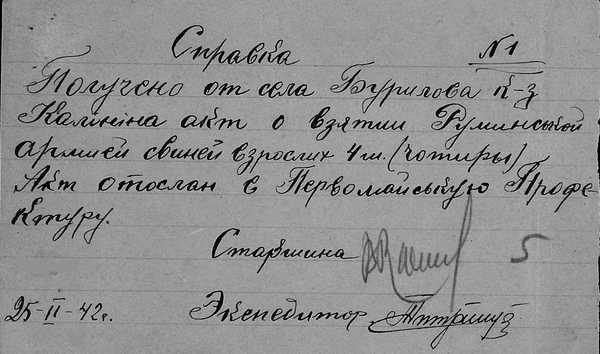 Справка №1
Получено от села Бурилова к-з
Калініна акт о взятии Руминськой
армией свиней взрослих 4 ш. (чотиры)
Акт отослан в Первомайськую Профе-
ктуру.
Старшина
5
25-II-42г. Экспедитор